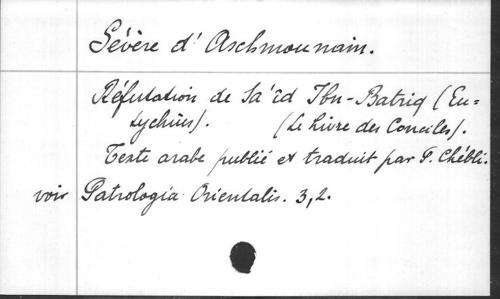 Sévère d'Aschmounain.
Réfutation de Sa'îd Ibn-Batriq (Eu=
tychius). (Le Livre des Conciles).
Texte arabe publié et traduit par P. Chébli.
voir Patrologia Orientalis. 3,2.